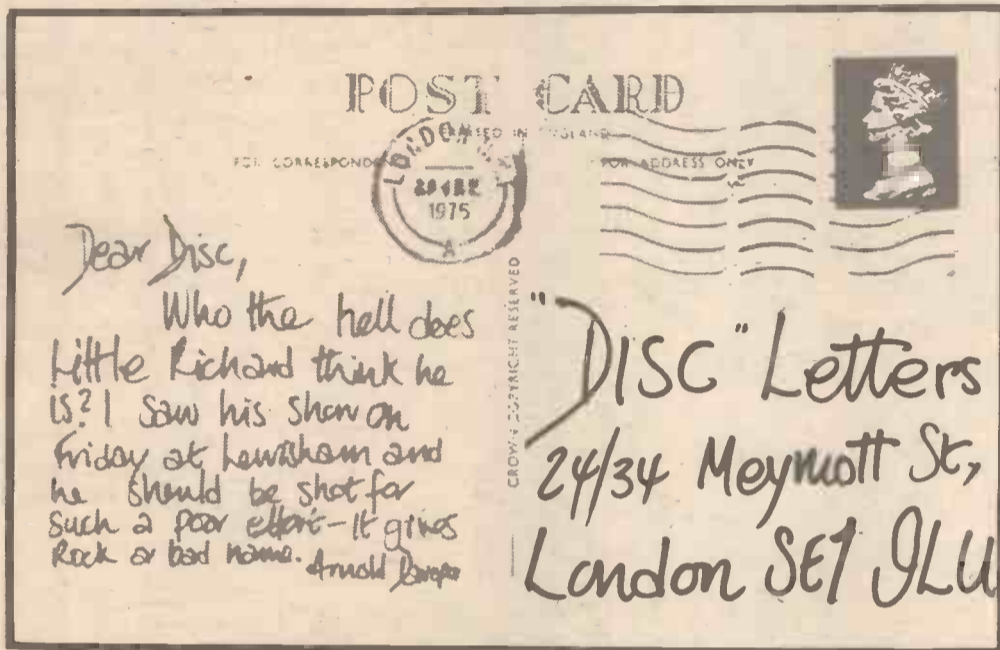 POST CARD
PRINTED IN ENGLAND
FOR CORRESPONDENCE
FOR ADDRESS ONLY
LONDON
1975
A
CROWN COPYRIGHT RESERVED
Dear Disc,
Who the hell does
Little Richard think he
is? I saw his show on
Friday at Lewisham and
he should be shot for
such a poor effort - It gives
Rock a bad name. Arnold
"DISC" Letters
24/34 Meymott St,
London SE1 9LU